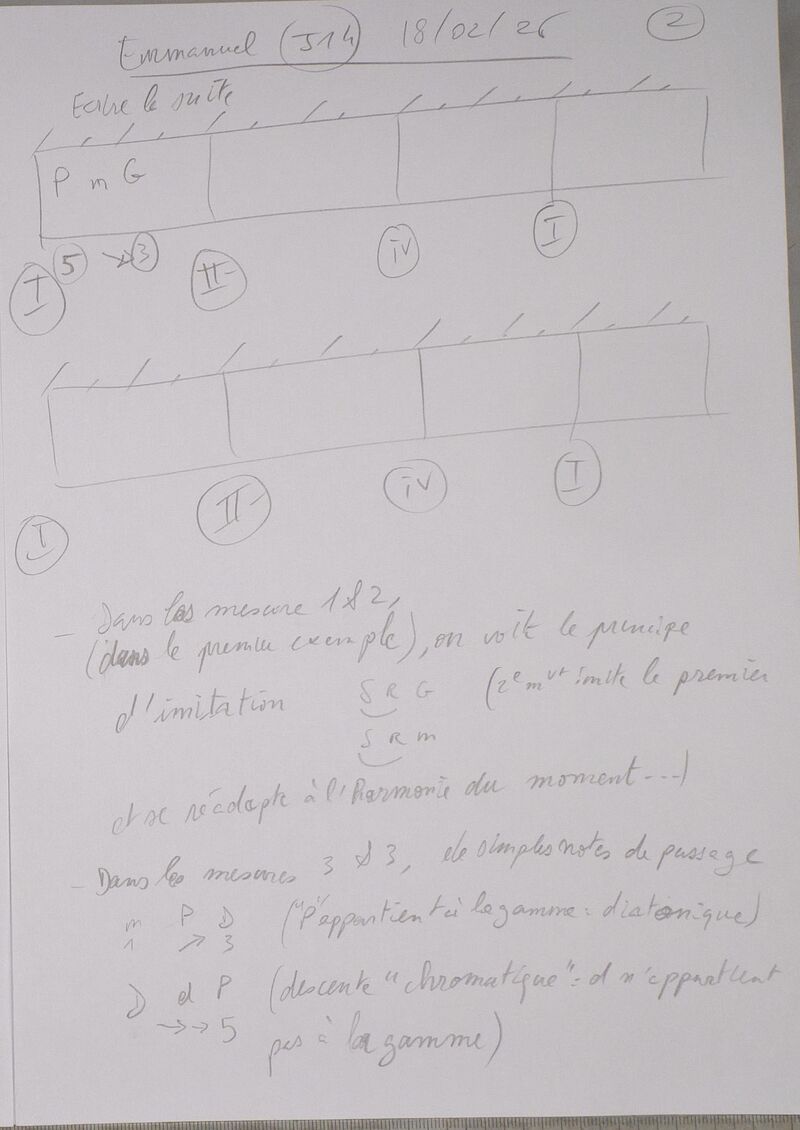 Emmanuel (J14) 18/02/26 2
Ecrire la suite
P m G
I 5 → 3 II- IV I
I II- IV I
- Dans les mesure 1 & 2,
(dans le premier exemple), on voit le principe
d'imitation S R G (2e mvt imite le premier
S R m
et se réadapte à l'harmonie du moment ...)
- Dans les mesures 3 & 3, de simples notes de passage
m P D ("P" appartient à la gamme : diatonique)
1 ↗ 3
D d P (descente "chromatique" : d n'appartient
→→ 5 pas à la gamme)